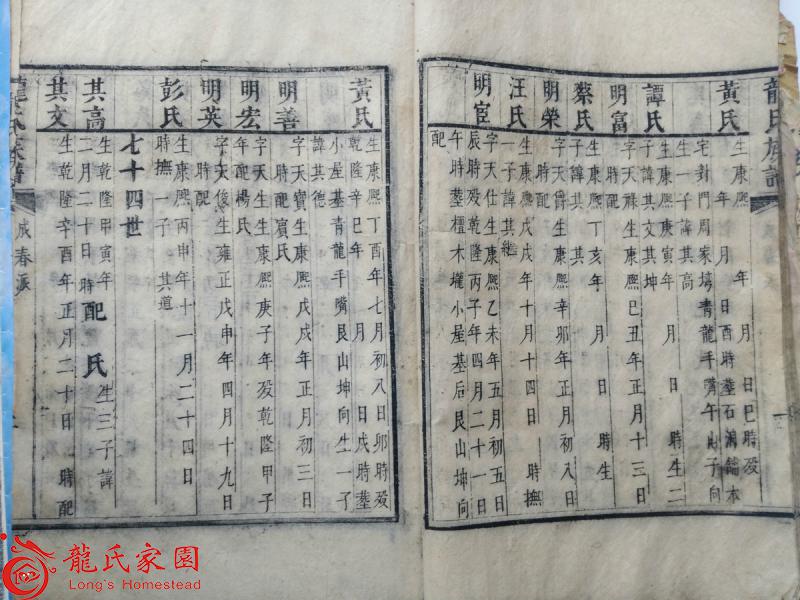 龍氏族譜
黃氏
生康熙 年 月 日巳時歿
年 月 日酉時塟石灣舘本
宅對門周家塝青龍手嘴午山子向
生一子諱其高
譚氏
生康熙庚寅年 月 日 時生二
子諱其文其坤
明富
字天祿生康熙己丑年正月十三日
時配
蔡氏
生康熙丁亥年 月 日 時生
一子諱其其
明榮
字天爵生康熙辛卯年正月初八日
時配
汪氏
生康熙戊戌年十月十四日 時撫
一子諱其継
明宦
字天仕生康熙乙未年五月初五日
辰時歿乾隆丙子年四月二十一日
午時塟檀木壠小屋基后艮山坤向
配
黃氏
生康熙丁酉年七月初八日卯時歿
乾隆辛巳年 月 日戌時塟
小屋基青龍手嘴艮山坤向生一子
諱其德
明善
字天寶生康熙戊戌年正月初三日
時配賓氏
明宏
字天生生康熙庚子年歿乾隆甲子
年配楊氏
明英
字天俊生雍正戊申年四月十九日
時配
彭氏
生康熙丙申年十一月二十四日
時撫一子 其道
七十四世
其高
生乾隆甲寅年
二月二十日 時配 氏 生三子諱
其文
生乾隆辛酉年正月二十日 時配
龍氏家譜
成春派
龍氏家園
Long's Homestead